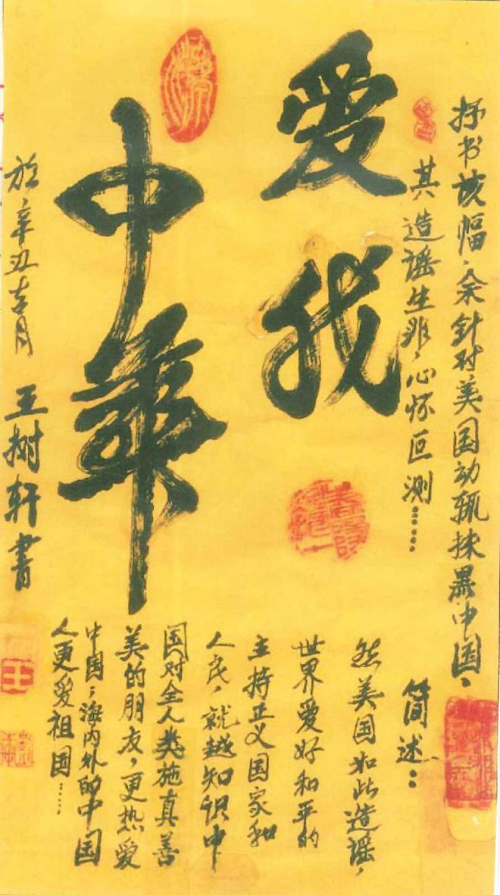 爱我
中华
抒书该幅，余针对美国动辄抹黑中国，
其造谣生非，心怀叵测……
简述：
然美国如此造谣，
世界爱好和平的
主持正义国家和
人民，就越知识中
国对全人类施真善
美的朋友，更热爱
中国；海内外的中国
人更爱祖国……
于辛丑吉月
王树轩書
王